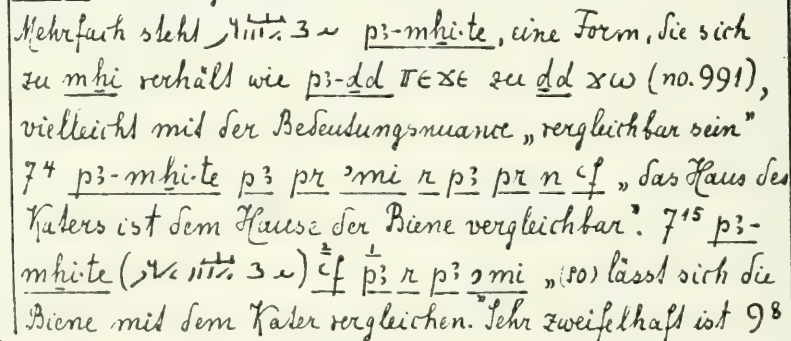 Mehrfach steht p3-mhi·te, eine Form, die sich
zu mhi verhält wie p3-ḏd ⲡⲉϫⲉ zu ḏd ϫⲱ (no. 991),
vielleicht mit der Bedeutungsnuance „vergleichbar sein"
7⁴ p3-mhi·te p3 pr ꜥmi r p3 pr n ꜥf „das Haus des
Katers ist dem Hause der Biene vergleichbar". 7¹⁵ p3-
mhi·te ( ) ꜥf p3 r p3 ꜥmi „(so) lässt sich die
Biene mit dem Kater vergleichen." Sehr zweifelhaft ist 9⁸